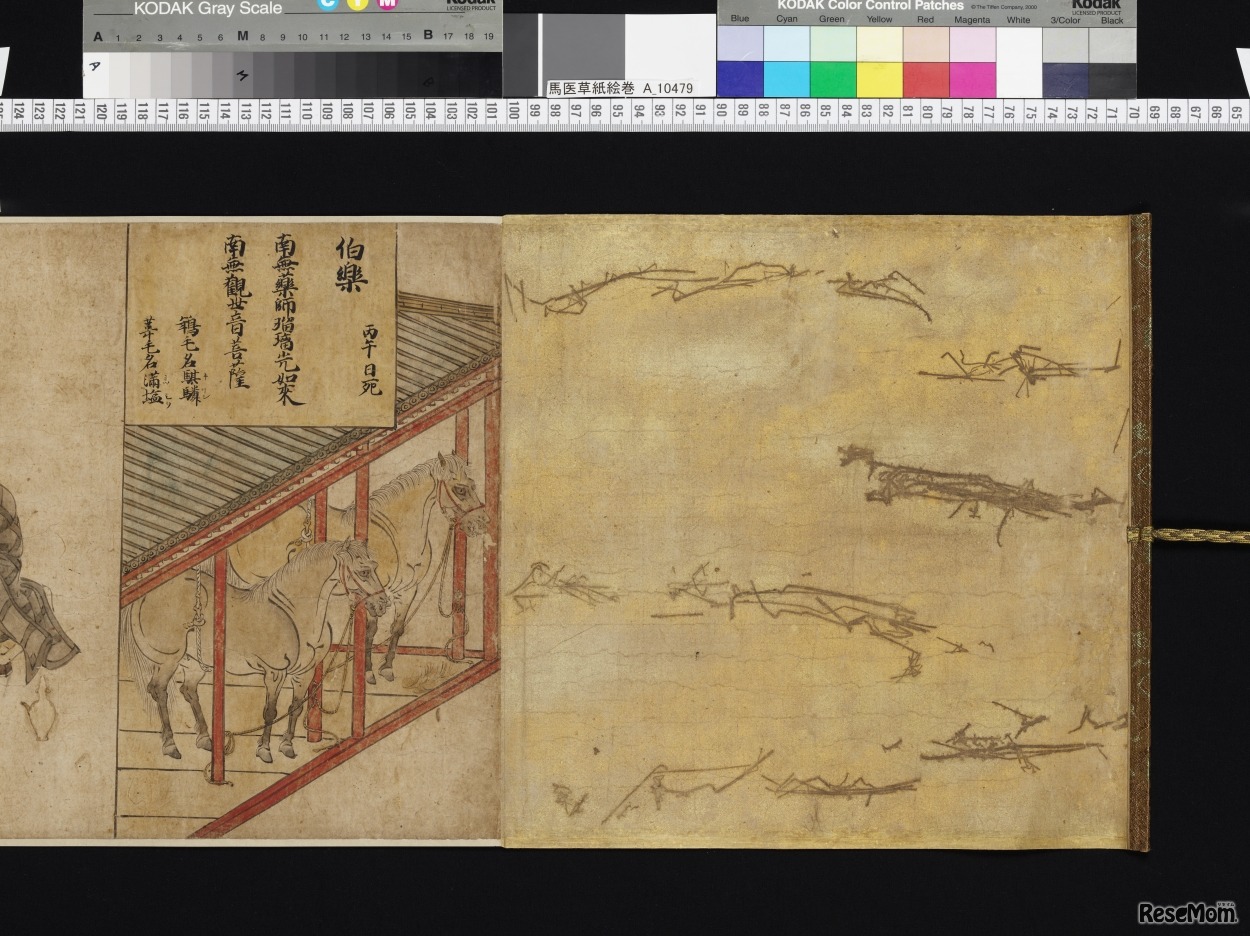 KODAK Gray Scale
C Y M
Kodak
LICENSED PRODUCT
A 1 2 3 4 5 6 M 8 9 10 11 12 13 14 15 B 17 18 19
KODAK Color Control Patches
© The Tiffen Company, 2000
Kodak
LICENSED PRODUCT
Blue Cyan Green Yellow Red Magenta White 3/Color Black
馬医草紙絵巻 A_10479
124 123 122 121 120 119 118 117 116 115 114 113 112 111 110 109 108 107 106 105 104 103 102 101 100 99 98 97 96 95 94 93 92 91 90 89 88 87 86 85 84 83 82 81 80 79 78 77 76 75 74 73 72 71 70 69 68 67 66 65
伯樂
丙午日死
南無藥師瑠璃光如來
南無觀世音菩薩
鵇毛名騏驎
葦毛名滿塩
ReseMom.